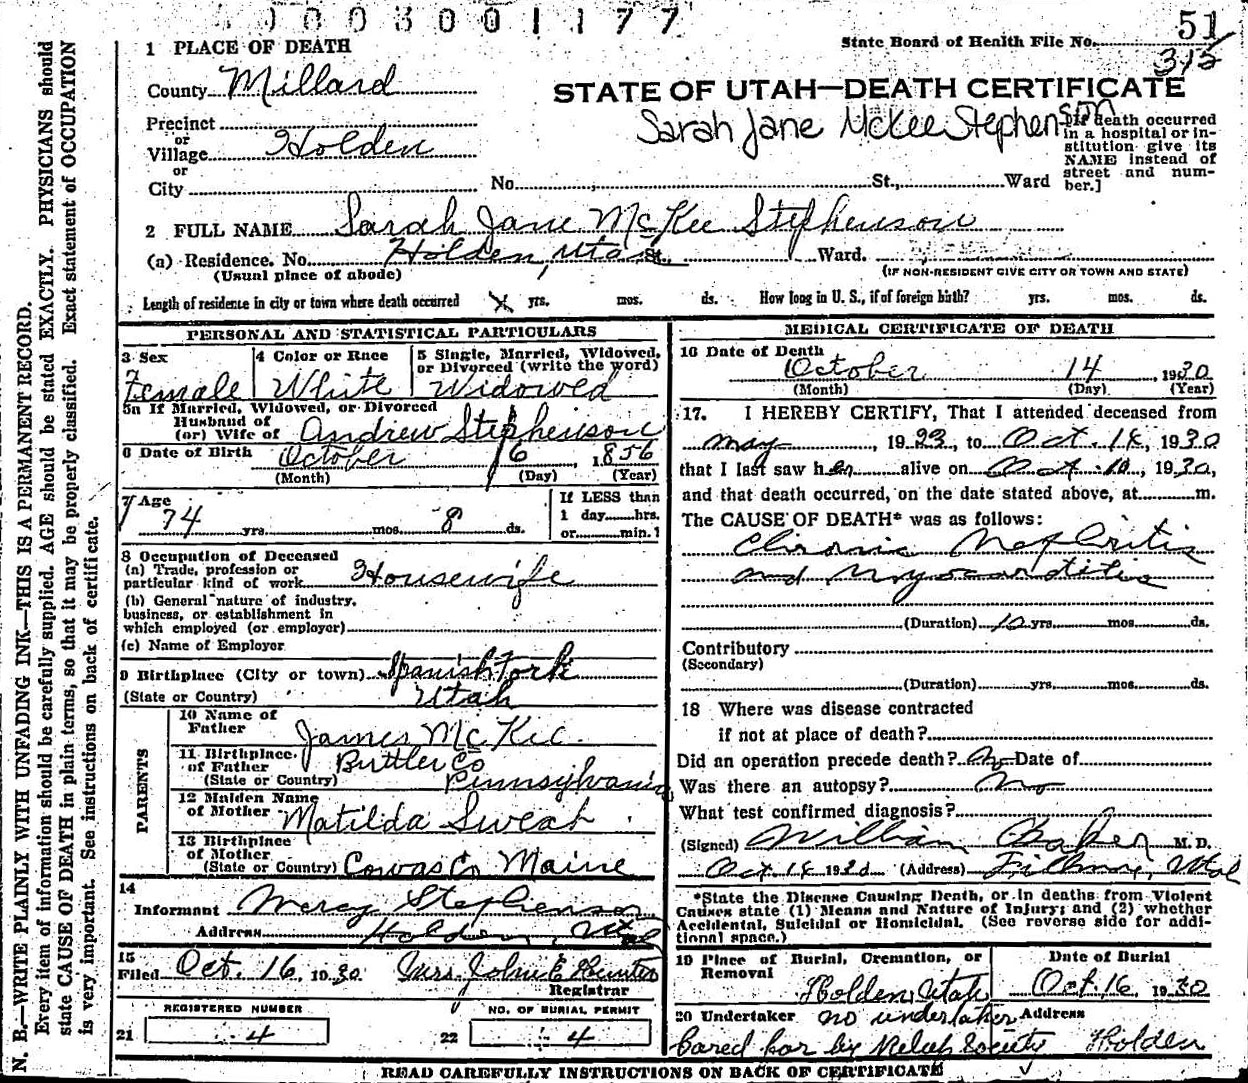 0003001177
51
State Board of Health File No.
315
1 PLACE OF DEATH
County Millard
STATE OF UTAH—DEATH CERTIFICATE
Sarah Jane McKee Stephenson
Precinct
or
Village Holden
or
City No. St., Ward
[If death occurred
in a hospital or in-
stitution give its
NAME instead of
street and num-
ber.]
2 FULL NAME Sarah Jane McKee Stephenson
(a) Residence. No. Holden, Utah St. Ward.
(Usual place of abode)
(IF NON-RESIDENT GIVE CITY OR TOWN AND STATE)
Length of residence in city or town where death occurred X yrs. mos. ds. How long in U. S., if of foreign birth? yrs. mos. ds.
PERSONAL AND STATISTICAL PARTICULARS
3 Sex
Female
4 Color or Race
White
5 Single, Married, Widowed,
or Divorced (write the word)
Widowed
5a If Married, Widowed, or Divorced
Husband of
(or) Wife of Andrew Stephenson
6 Date of Birth October 6, 1856
(Month) (Day) (Year)
7 Age
74 yrs. mos. 8 ds.
If LESS than
1 day hrs.
or min.?
8 Occupation of Deceased
(a) Trade, profession or
particular kind of work Housewife
(b) General nature of industry,
business, or establishment in
which employed (or employer)
(c) Name of Employer
9 Birthplace (City or town) Spanish Fork
(State or Country) Utah
PARENTS
10 Name of
Father James McKee.
11 Birthplace
of Father Buttler Co
(State or Country) Pennsylvania
12 Maiden Name
of Mother Matilda Sweat
13 Birthplace
of Mother
(State or Country) Cowas Co Maine
14
Informant Mercy Stephenson
Address Holden, Utah
15
Filed Oct. 16 1930 Mrs John E Hunter
Registrar
REGISTERED NUMBER
21 4
NO. OF BURIAL PERMIT
22 4
MEDICAL CERTIFICATE OF DEATH
16 Date of Death
October 14, 1930
(Month) (Day) (Year)
17. I HEREBY CERTIFY, That I attended deceased from
May, 1923, to Oct. 14, 1930
that I last saw her alive on Oct. 10, 1930,
and that death occurred, on the date stated above, at m.
The CAUSE OF DEATH* was as follows:
Chronic Nephritis
and Myocarditis
(Duration) 10 yrs. mos. ds.
Contributory
(Secondary)
(Duration) yrs. mos. ds.
18 Where was disease contracted
if not at place of death?
Did an operation precede death? No Date of
Was there an autopsy? No
What test confirmed diagnosis?
(Signed) William Baker M. D.
Oct 14 1930 (Address) Fillmore, Utah
*State the Disease Causing Death, or in deaths from Violent
Causes state (1) Means and Nature of Injury; and (2) whether
Accidental, Suicidal or Homicidal. (See reverse side for addi-
tional space.)
19 Place of Burial, Cremation, or
Removal
Holden, Utah
Date of Burial
Oct. 16, 1930
20 Undertaker no undertaker Address
Cared for by Relief Society Holden
READ CAREFULLY INSTRUCTIONS ON BACK OF CERTIFICATE
N. B.—WRITE PLAINLY WITH UNFADING INK—THIS IS A PERMANENT RECORD.
Every item of information should be carefully supplied. AGE should be stated EXACTLY. PHYSICIANS should
state CAUSE OF DEATH in plain terms, so that it may be properly classified. Exact statement of OCCUPATION
is very important. See instructions on back of certificate.